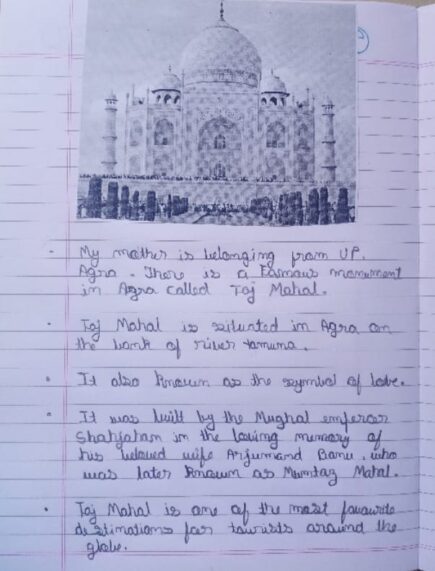 My mother is belonging from UP.
Agra. There is a Famous monument
in Agra called Taj Mahal.
Taj Mahal is situated in Agra on
the bank of river Yamuna.
It also Known as the symbol of love.
It was built by the Mughal emperor
Shahjahan in the loving memory of
his beloved wife Arjumand Banu, who
was later Known as Mumtaz Mahal.
Taj Mahal is one of the most favourite
destinations for tourists around the
globe.